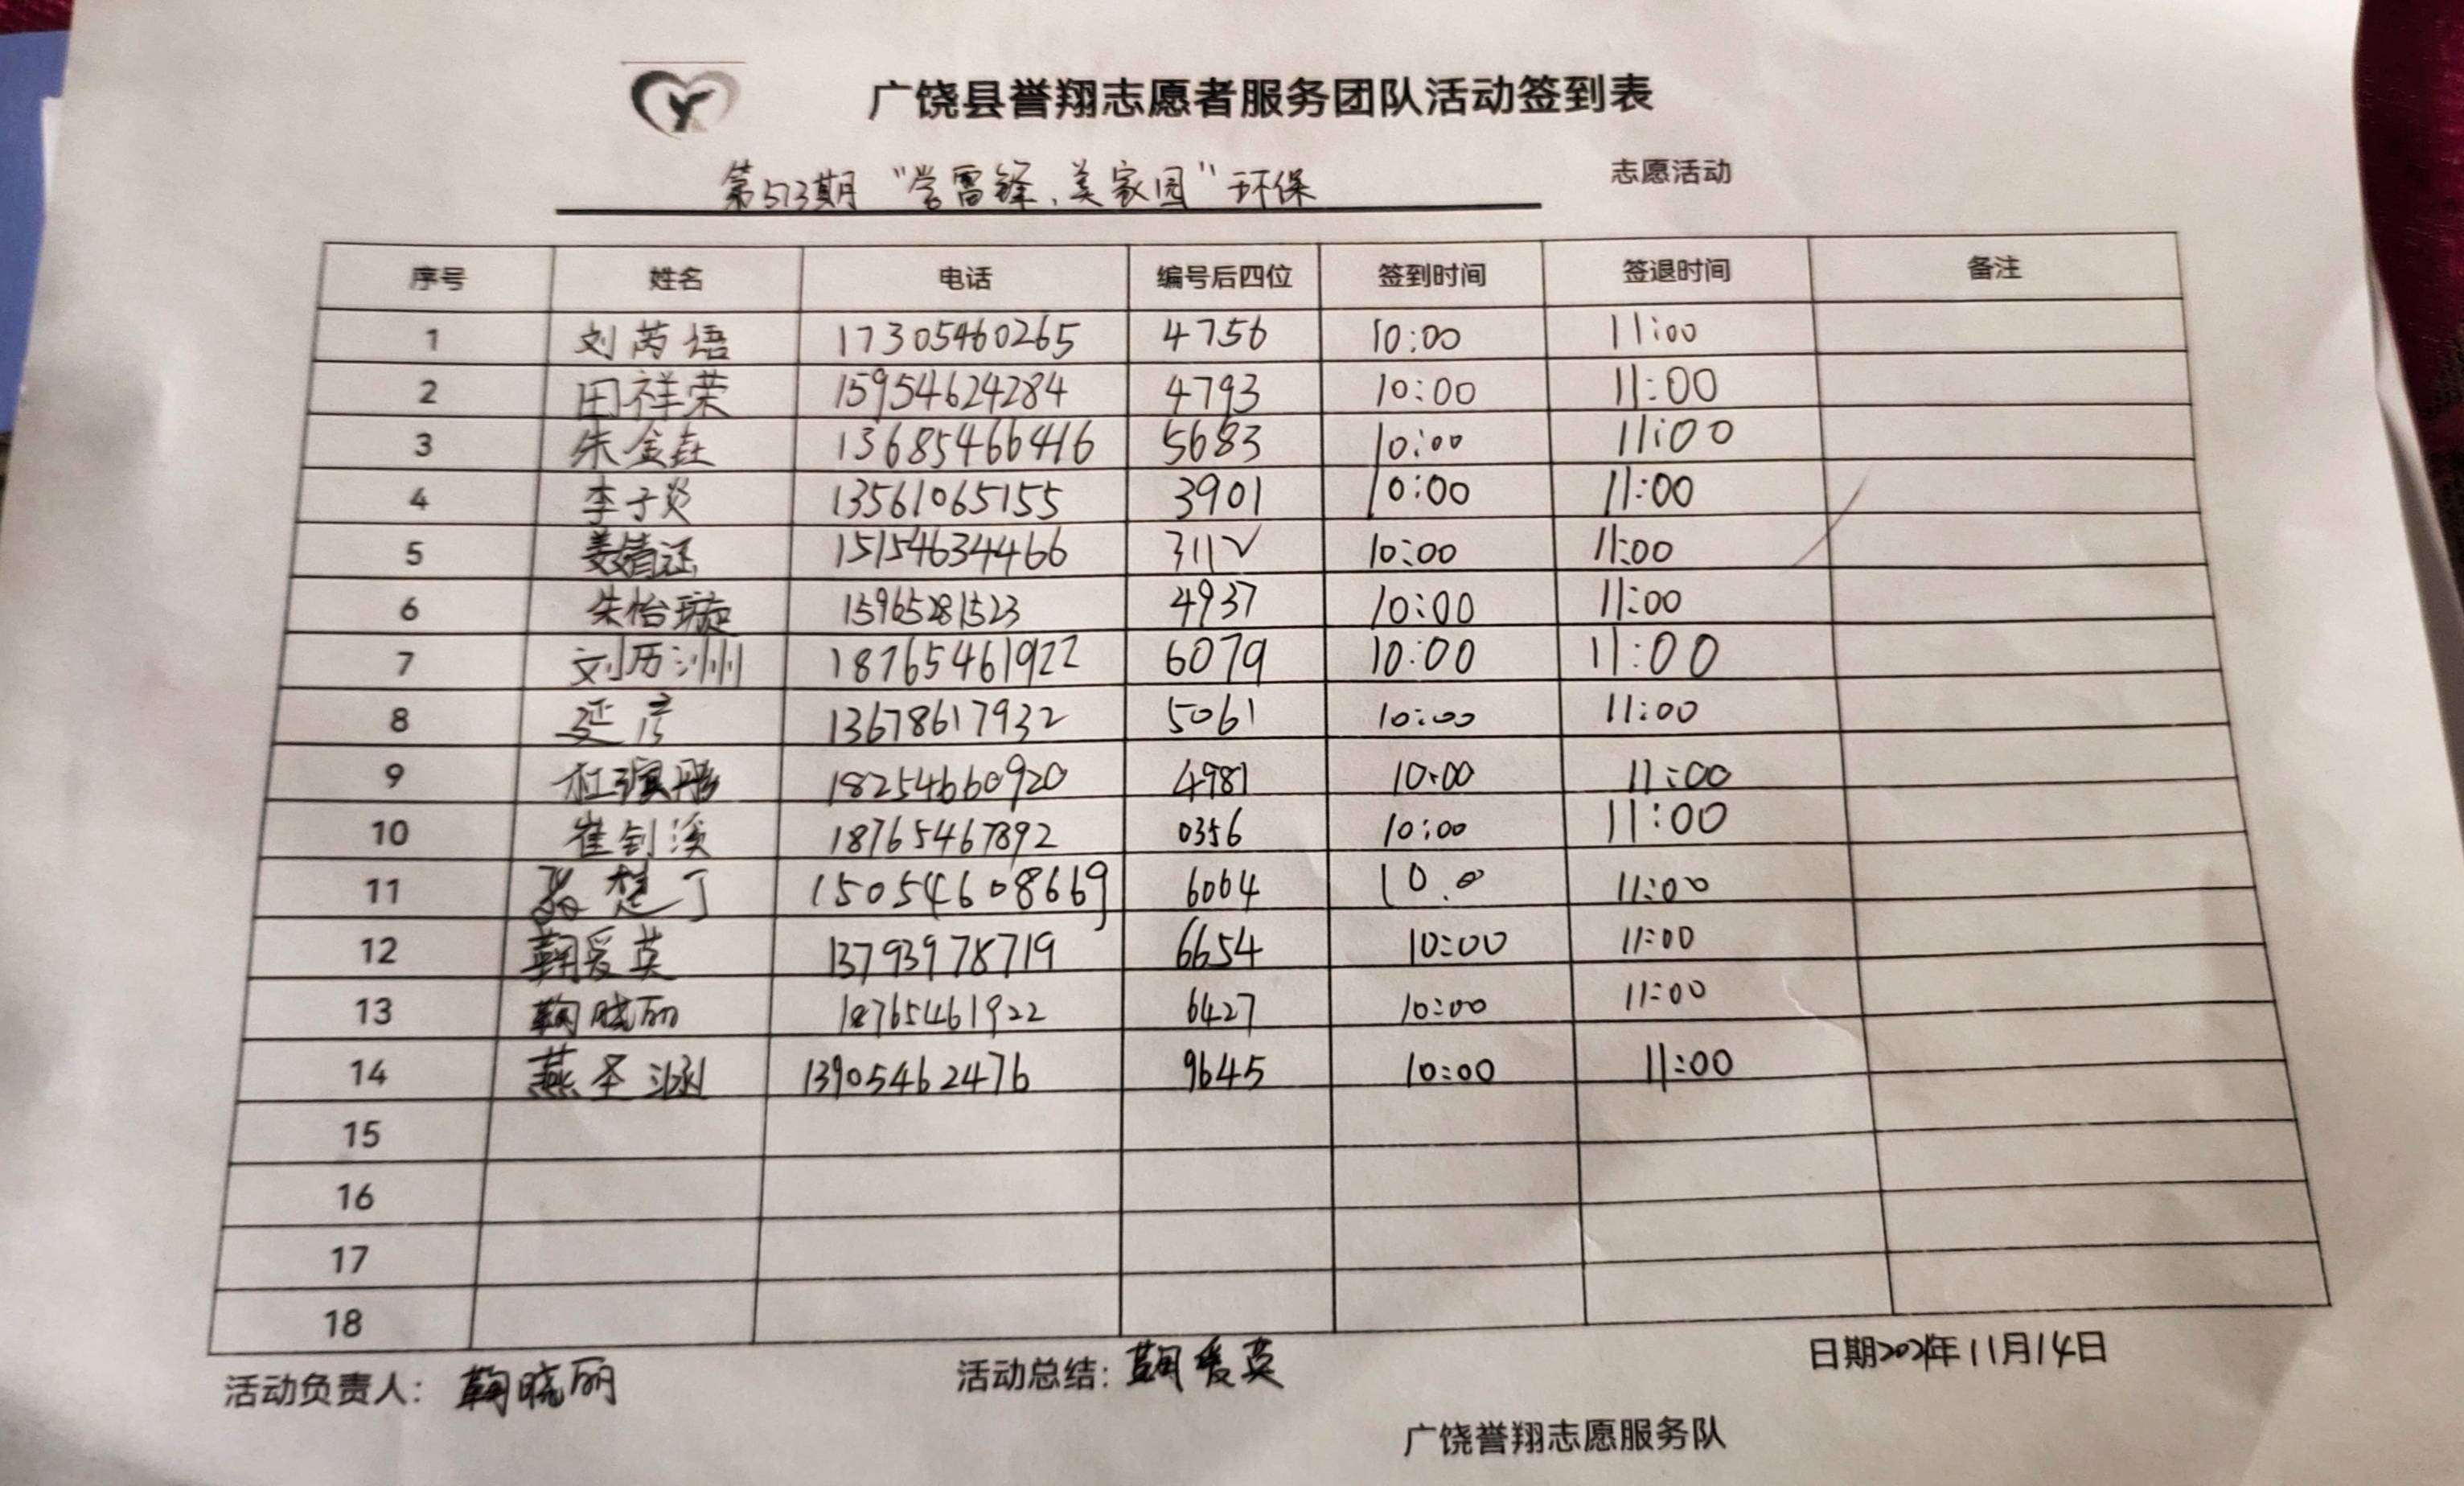 广饶县誉翔志愿者服务团队活动签到表
第573期“学雷锋、美家园”环保 志愿活动
序号 姓名 电话 编号后四位 签到时间 签退时间 备注
1 刘芮语 17305460265 4756 10:00 11:00
2 田祥荣 15954624284 4793 10:00 11:00
3 朱金垚 13685466416 5683 10:00 11:00
4 李子炎 13561065155 3901 10:00 11:00
5 姜婧涵 15154634466 3112 10:00 11:00
6 朱怡璇 15965281523 4937 10:00 11:00
7 刘历洲 18765461922 6079 10:00 11:00
8 延彦 13678617932 5061 10:00 11:00
9 杜滨彤 18254660920 4981 10:00 11:00
10 崔钊溪 18765467892 0356 10:00 11:00
11 楚丁 15054608669 6064 10.0 11:00
12 鞠爱英 13793978719 6654 10:00 11:00
13 鞠晓丽 18765461922 6427 10:00 11:00
14 燕圣涵 13905462476 9645 10:00 11:00
15
16
17
18
活动负责人：鞠晓丽 活动总结：鞠爱英 日期2021年11月14日
广饶誉翔志愿服务队